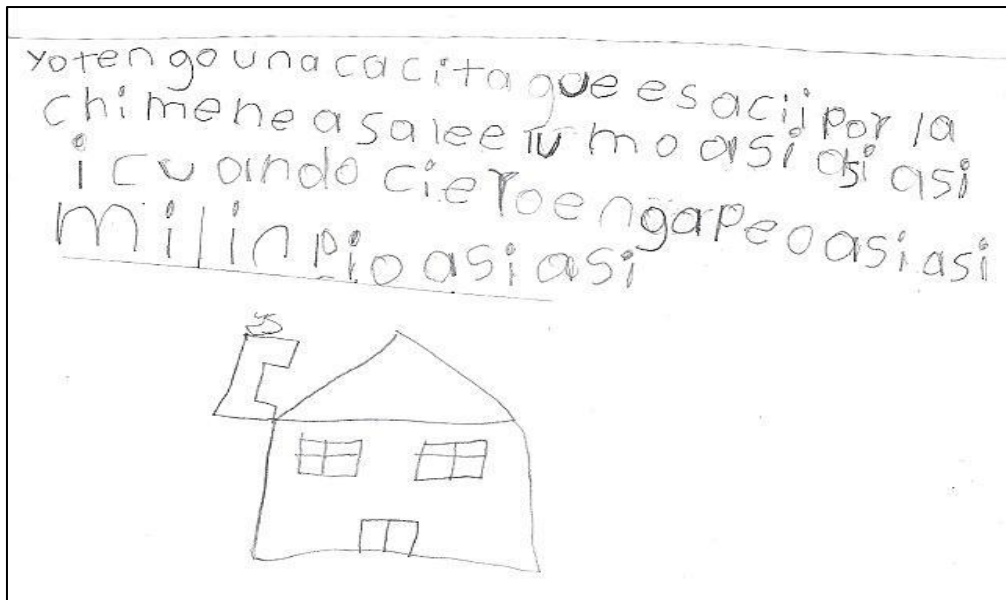 yotengounacacita que esacii por la
chimenea salee Tumo asi asi asi
i cuando cieroengapeo asi asi
milinpio asi asi